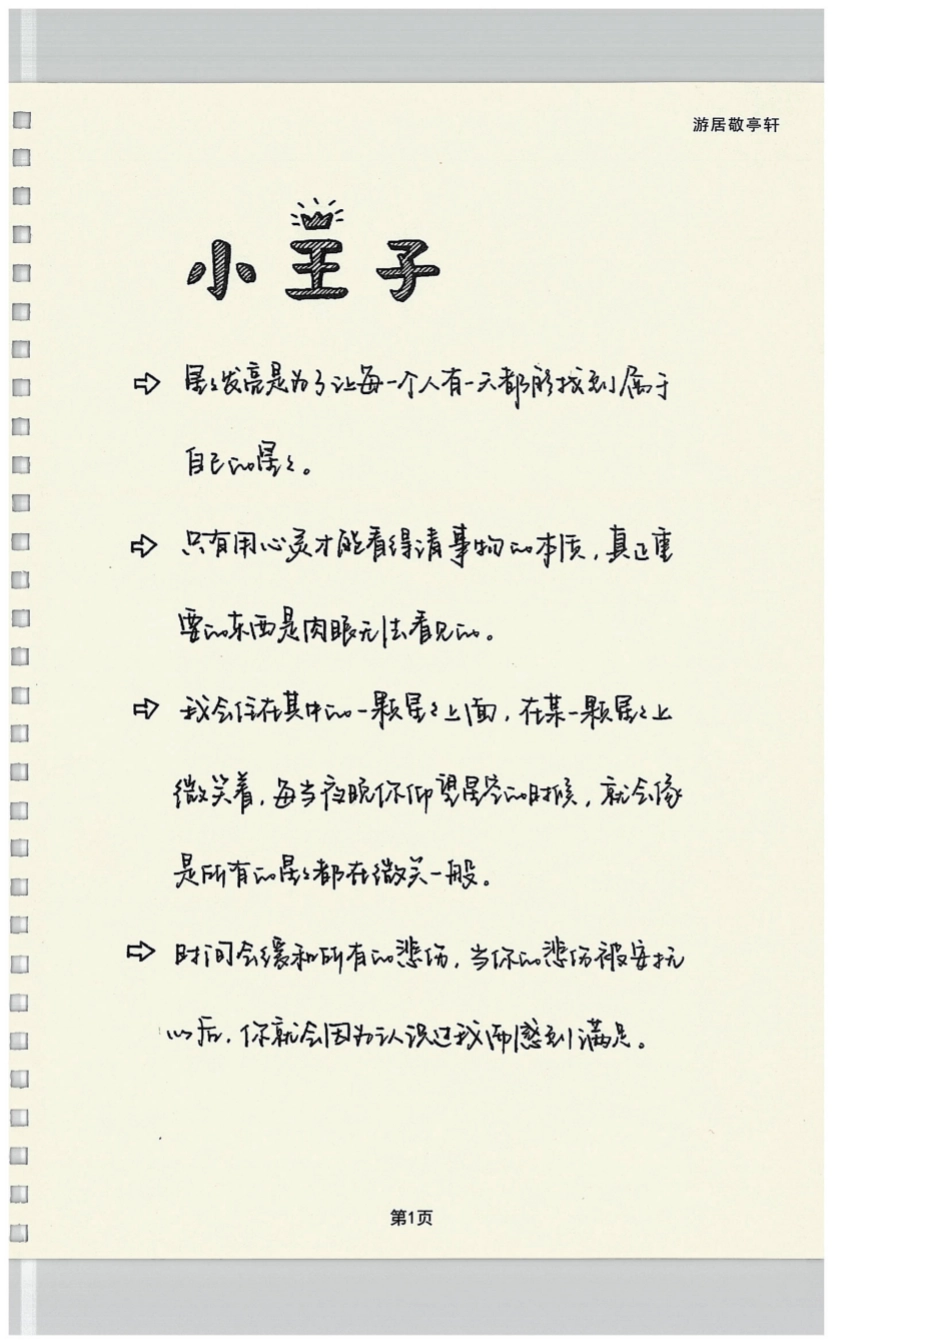 游居敬亭轩
小王子
⇨ 星星发亮是为了让每一个人有一天都能找到属于
自己的星星。
⇨ 只有用心灵才能看得清事物的本质，真正重
要的东西是肉眼无法看见的。
⇨ 我会住在其中的一颗星星上面，在某一颗星星上
微笑着，每当夜晚你仰望星空的时候，就会像
是所有的星星都在微笑一般。
⇨ 时间会缓和所有的悲伤，当你的悲伤被安抚
以后，你就会因为认识过我而感到满足。
第1页